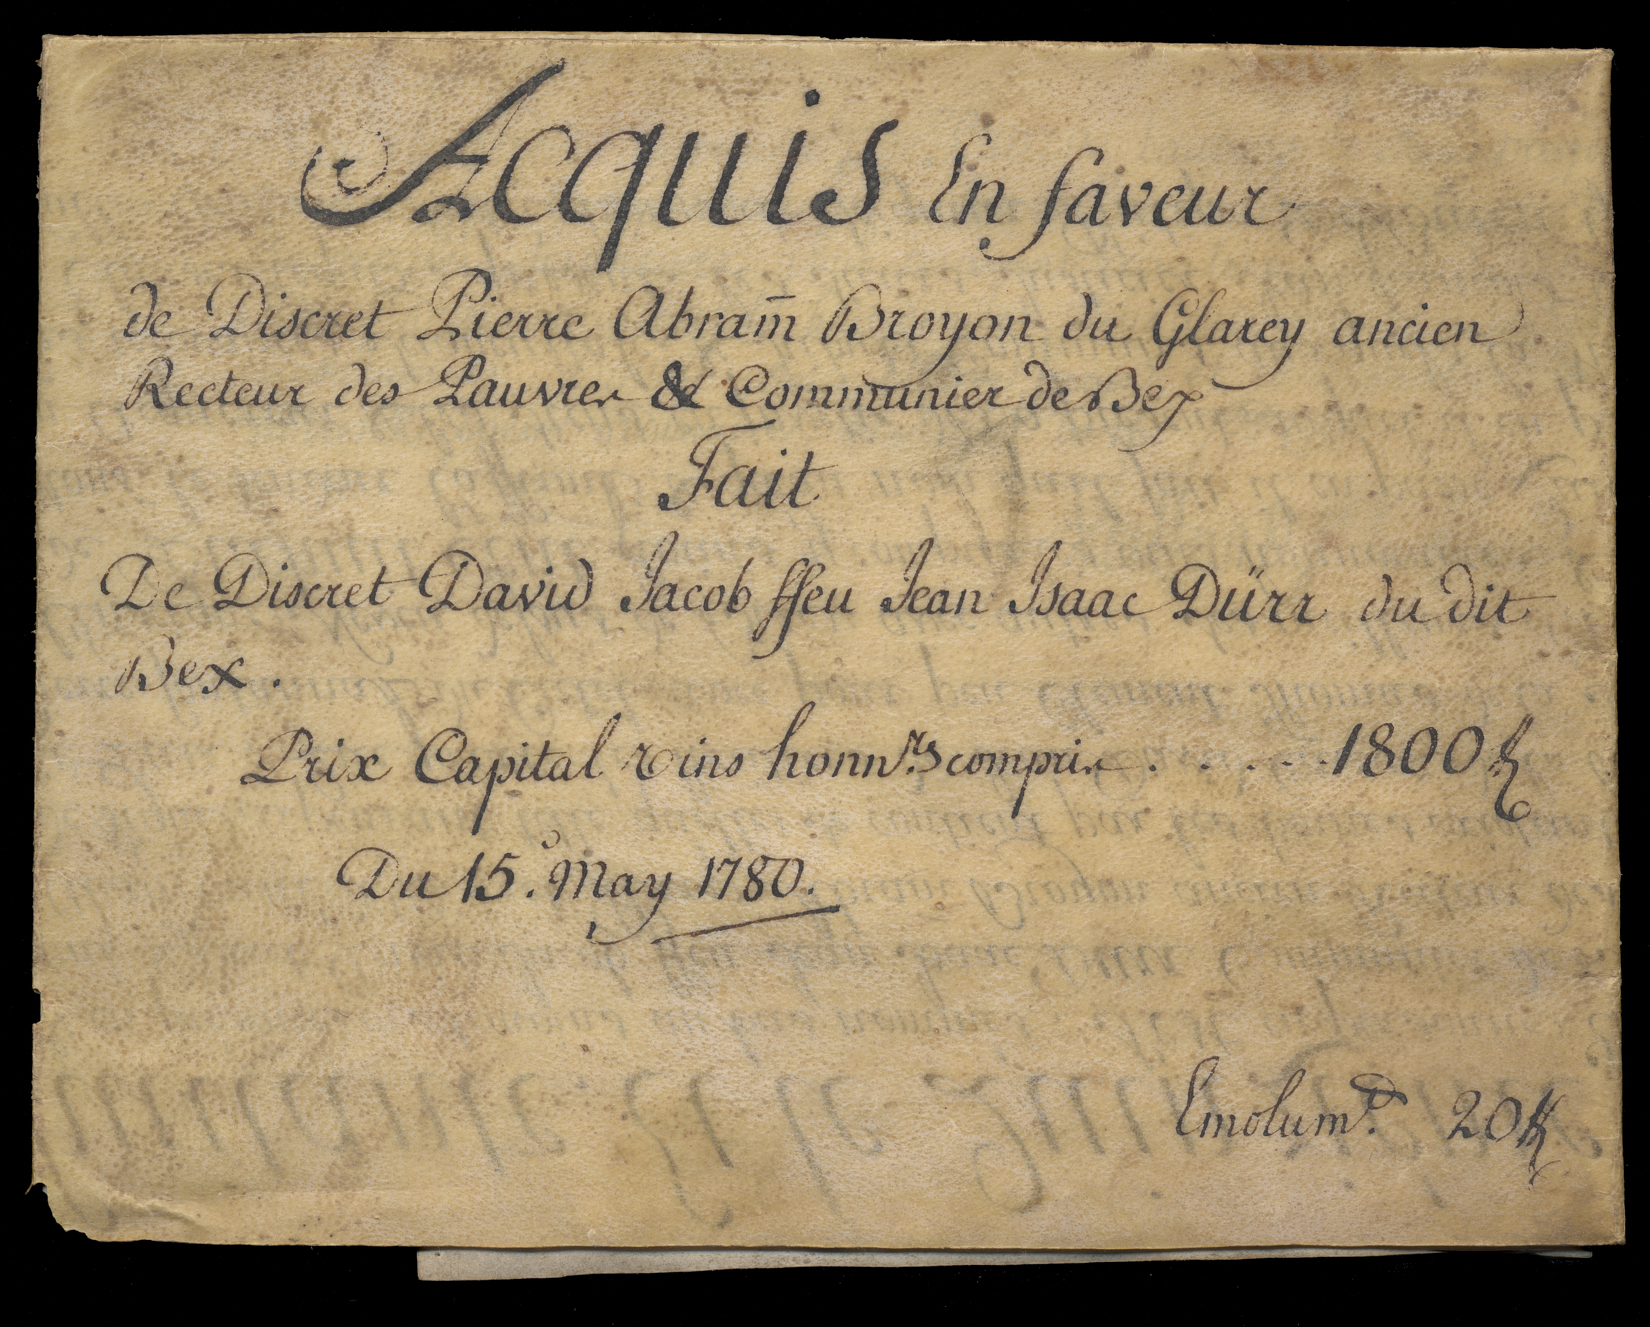 Acquis En faveur
de Discret Pierre Abram̄ Broyon du Glarey ancien
Recteur des Pauvres & Communier de Bex
Fait
De Discret David Jacob ffeu Jean Isaac Dürr du dit
Bex.
Prix Capital vins honn.res compris . . . . . 1800 ff
Du 15.e May 1780.
Emolum.t 20 ff